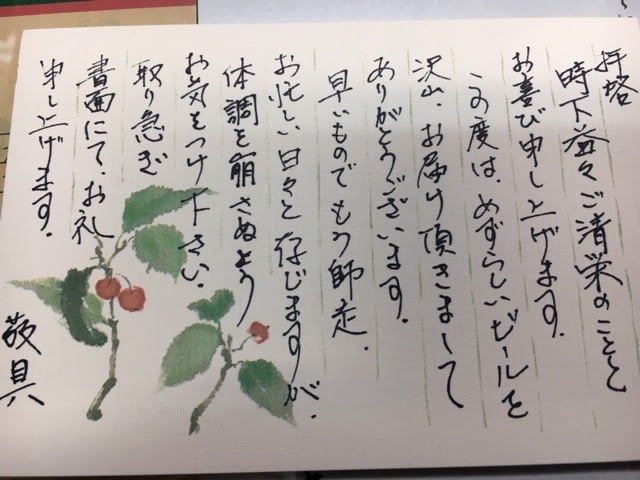 拝啓
時下益々ご清栄のことと
お喜び申し上げます.
この度は、めずらしいビールを
沢山、お届け頂きまして
ありがとうございます.
早いものでもう師走.
お忙しい日々と存じますが、
体調を崩さぬよう
お気をつけ下さい.
取り急ぎ
書面にて、お礼
申し上げます.
敬具